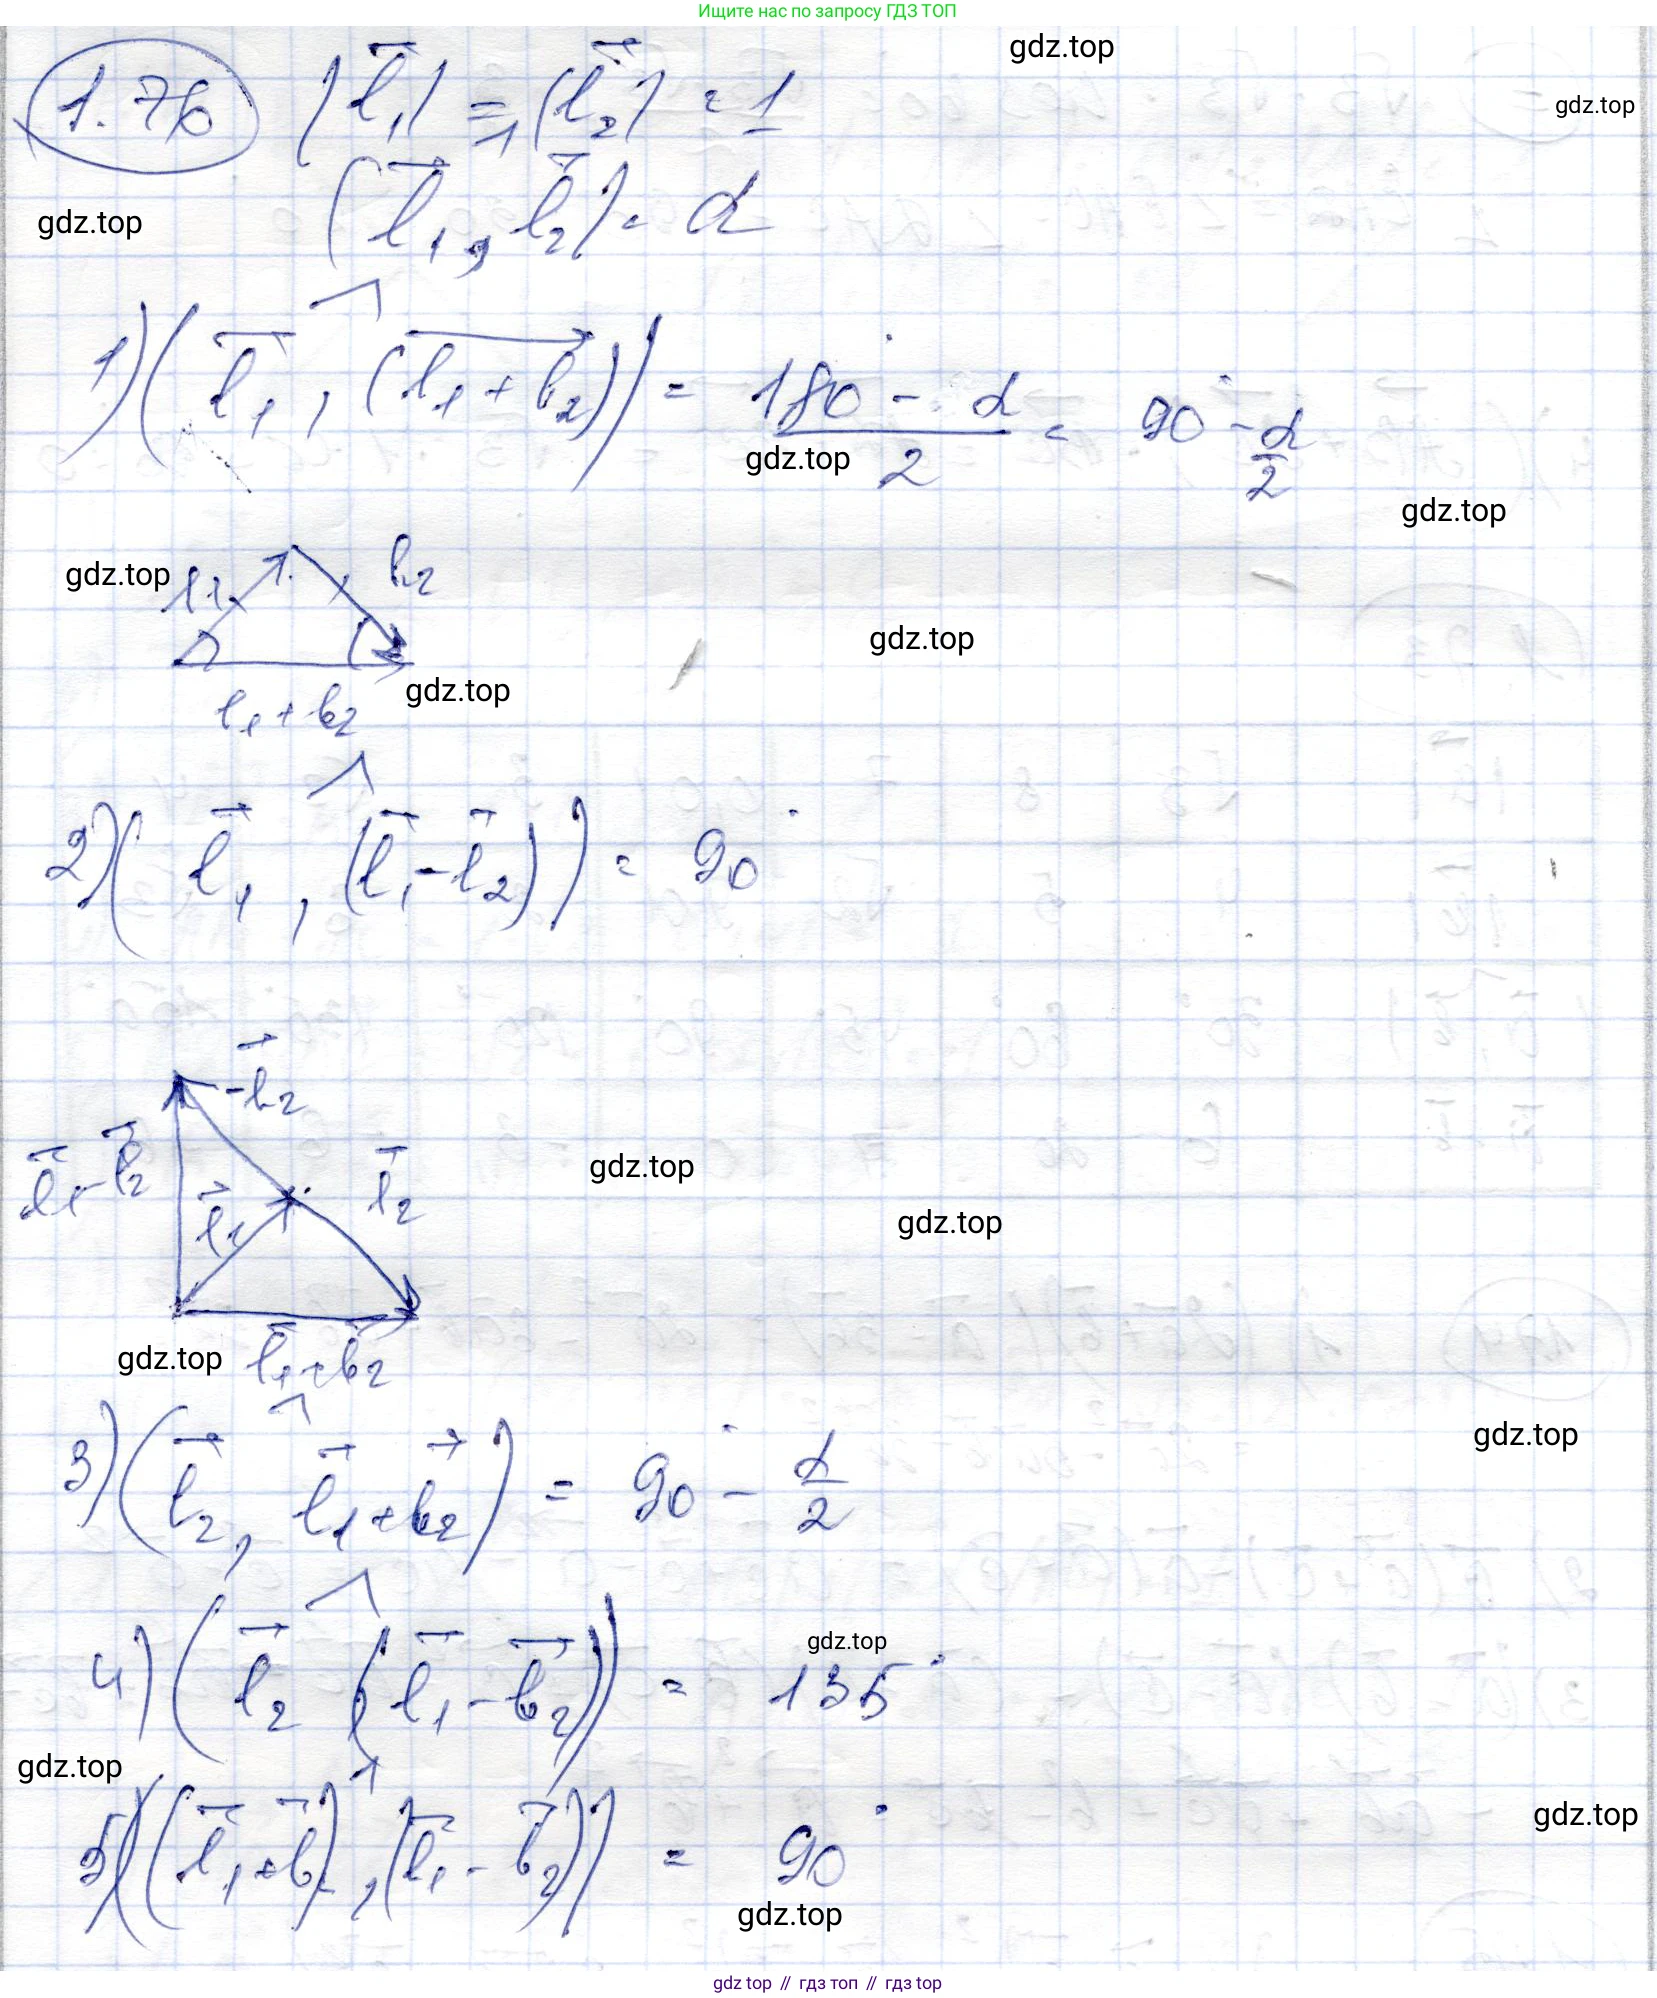 Ищите нас по запросу ГДЗ ТОП
gdz.top
gdz.top
1.76 |l₁| = |l₂| = 1
1
(l₁, l₂) = α
gdz.top
1) (l₁, (l₁ + l₂)) = (180° - α)/2 = 90° - α/2
gdz.top
gdz.top
gdz.top
l₁ l₂
gdz.top
gdz.top
l₁ + l₂
2) (l₁, (l₁ - l₂)) = 90°
-l₂
l₁ - l₂ l₁ l₂
gdz.top
gdz.top
gdz.top
l₁ + l₂
gdz.top
3) (l₂, l₁ + l₂) = 90° - α/2
gdz.top
4) (l₂, (l₁ - l₂)) = 135°
gdz.top
gdz.top
5) ((l₁ + l₂), (l₁ - l₂)) = 90°
gdz.top
gdz top // гдз топ // гдз top